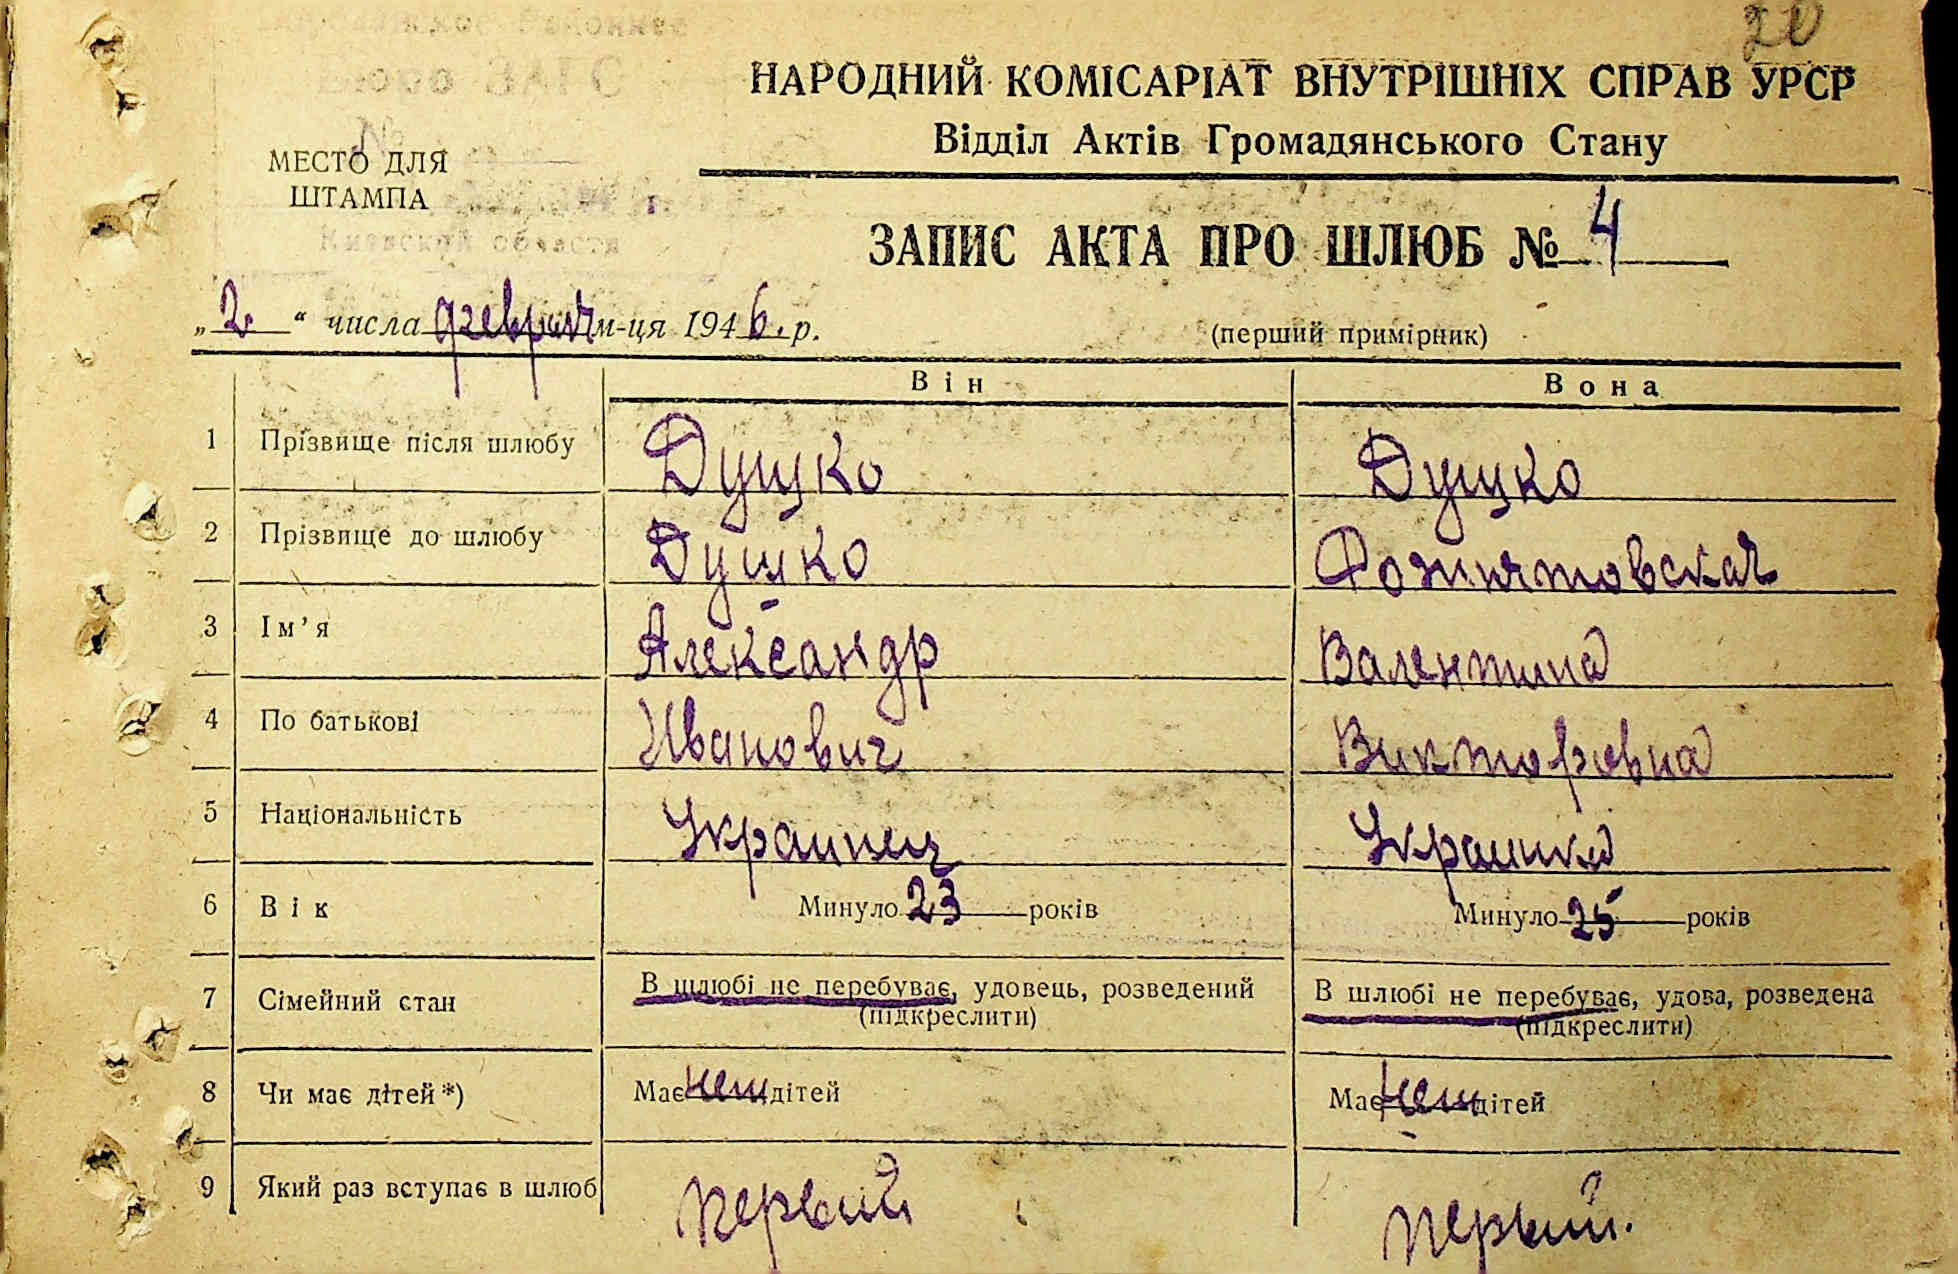 20
Бюро ЗАГС
НАРОДНИЙ КОМІСАРІАТ ВНУТРІШНІХ СПРАВ УРСР
Відділ Актів Громадянського Стану
№
МЕСТО ДЛЯ
ШТАМПА
Киевской области
ЗАПИС АКТА ПРО ШЛЮБ № 4
„2.“ числа февраля м-ця 1946.р.
(перший примірник)
Він Вона
1 Прізвище після шлюбу Дуцко Дуцко
2 Прізвище до шлюбу Дуцко
3 Ім'я Александр Валентина
4 По батькові Иванович Викторовна
5 Національність Украинец Украинка
6 Вік Минуло 23 років Минуло 25 років
7 Сімейний стан В шлюбі не перебуває, удовець, розведений В шлюбі не перебуває, удова, розведена
(підкреслити) (підкреслити)
8 Чи має дітей*) Має нет дітей Має нет дітей
9 Який раз вступає в шлюб первый первый.